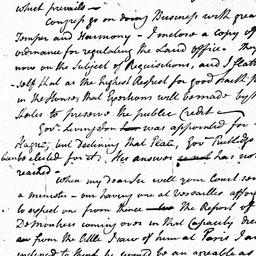 which prevails —
Congress go on doing Business with grea
Temper and Harmony — I enclose a Copy of
ordinance for regulating the Land Office — They
now on the Subject of Requisitions, and I flatt
-self that as the highest Respect for good Faith p
in the Houses that Exertions will be made by th
States to preserve the public Credit —
Gov. Livingston was appointed for
Hague, but declining that Place, Gov Rutledge
been elected for it. His answer has not
reached
When my dear Sir will your Court sen
a minister — our having one at Versailles affor
to expect one from thence — The Report of
Demoustiers coming over in that Capacity
from the little I saw of him at Paris I am
inclined to think he would be an agreeable as